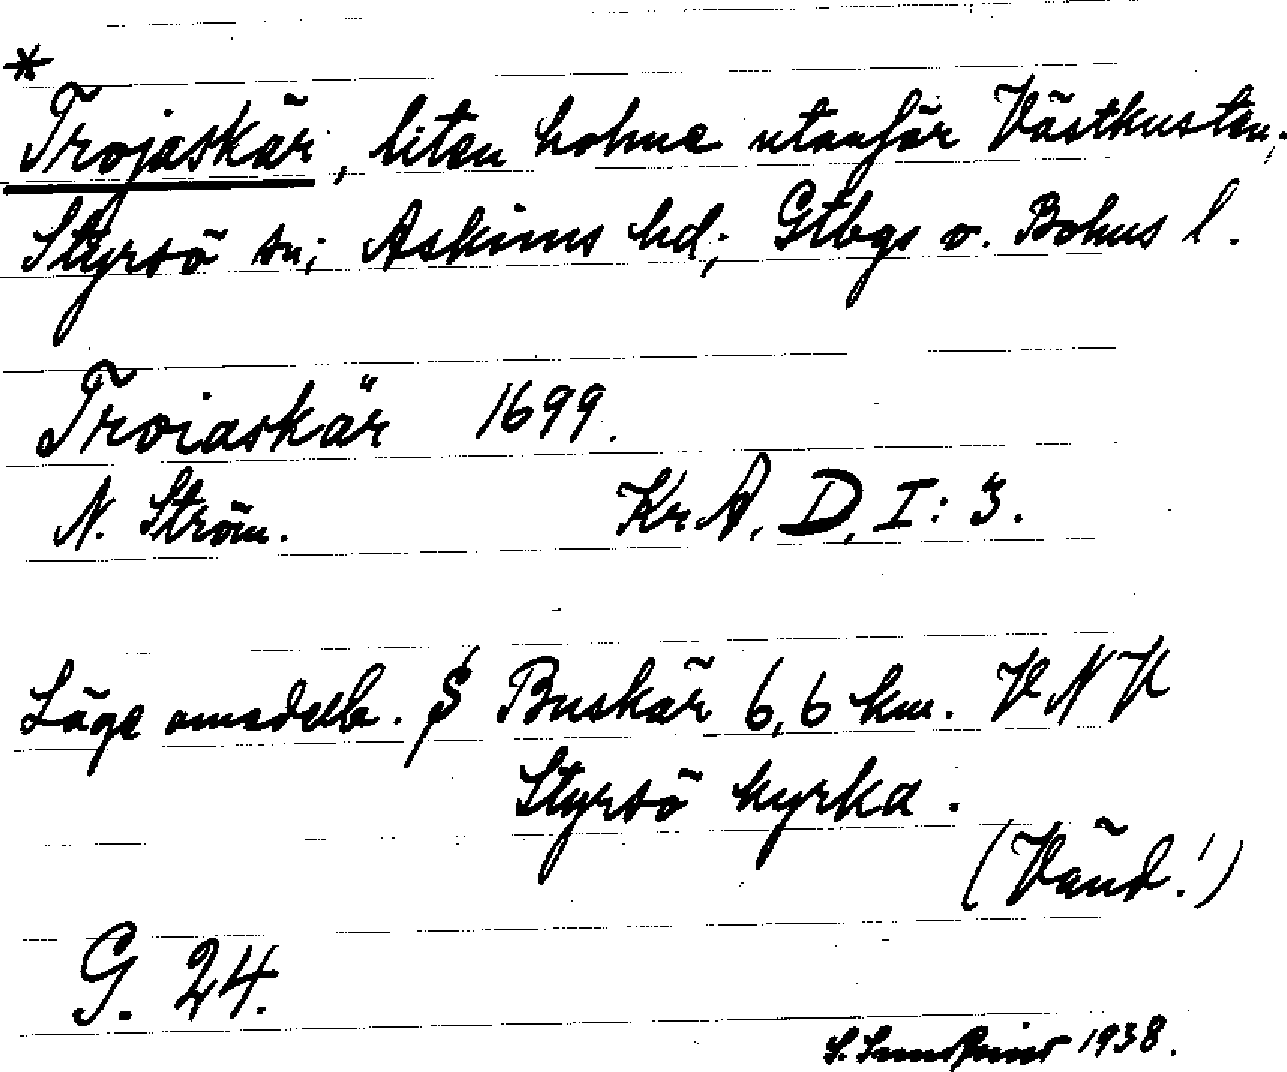 *
Trojaskär, liten holme utanför Västkusten,
Styrsö sn; Askims hd; Gtbgs o. Bohus l.
Troiaskär 1699.
N. Ström. Kr A. D, I: 3.
Läge omedelb. S Buskär 6,6 km. VNV
Styrsö kyrka.
(Vänd!)
G. 24.
S. 1938.